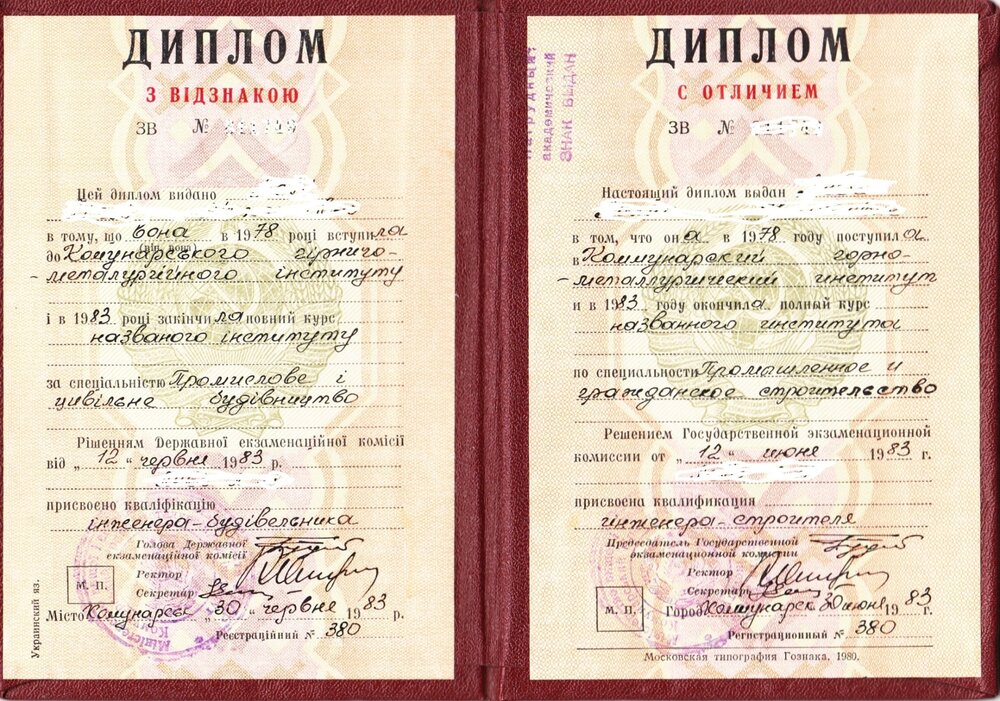 ДИПЛОМ
З ВІДЗНАКОЮ
ЗВ №
Цей диплом видано
в тому, що вона в 1978 році вступила
(він, вона)
до Комунарського гірничо-
-металургійного інституту
і в 1983 році закінчила повний курс
названого інституту
за спеціальністю Промислове і
цивільне будівництво
Рішенням Державної екзаменаційної комісії
від „12“ червня 1983 р.
присвоєно кваліфікацію
інженера-будівельника
Голова Державної
екзаменаційної комісії
Ректор
Секретар
М. П.
Місто Комунарськ „30“ червня 1983 р.
Реєстраційний № 380
Украинский яз.
ДИПЛОМ
С ОТЛИЧИЕМ
ЗВ №
нагрудный
академический
ЗНАК ВЫДАН
Настоящий диплом выдан
в том, что она в 1978 году поступила
в Коммунарский горно-
-металлургический институт
и в 1983 году окончила полный курс
названного института
по специальности Промышленное и
гражданское строительство
Решением Государственной экзаменационной
комиссии от „12“ июня 1983 г.
присвоена квалификация
инженера-строителя
Председатель Государственной
экзаменационной комиссии
Ректор
Секретарь
М. П.
Город Коммунарск 30 июня 1983 г.
Регистрационный № 380
Московская типография Гознака. 1980.